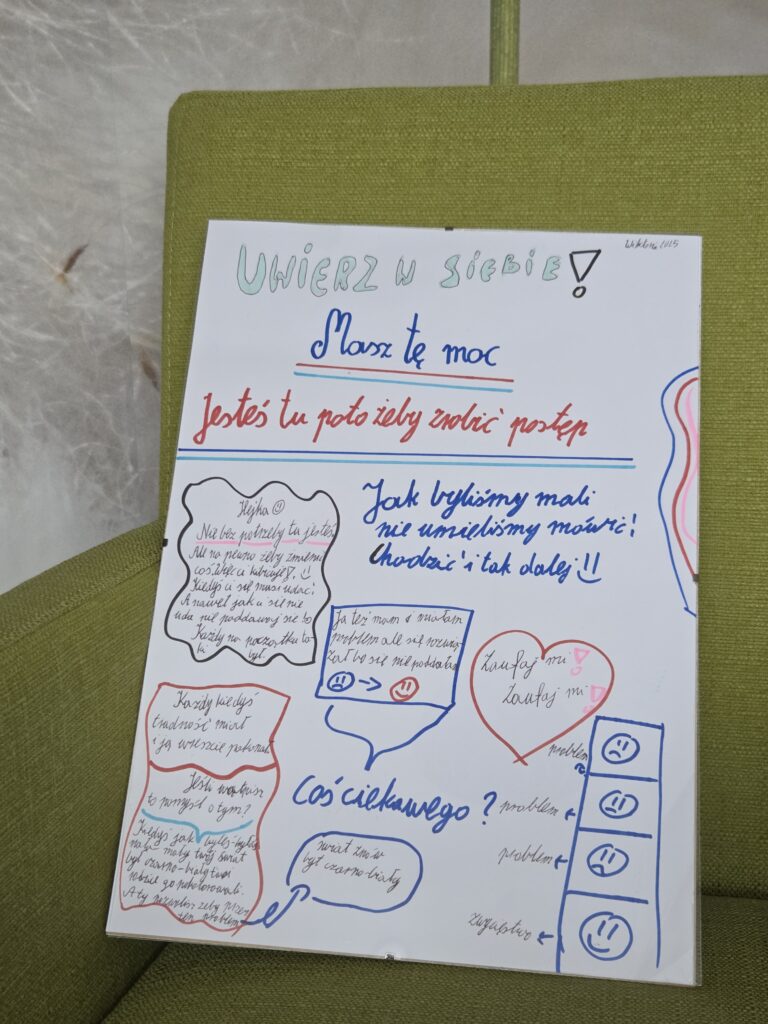 Wiktoria 2025
UWIERZ W SIEBIE!
Masz tę moc
Jesteś tu poto żeby zrobić postęp
Hejka
Nie bez potrzeby tu jesteś
Ale na pewno żeby zmienić
coś
Kiedyś ci się musi udać!
A nawet jak ci się nie
uda nie poddawaj się bo
Każdy na początku ta-
ki był.
Jak byliśmy mali
nie umieliśmy mówić!
Chodzić i tak dalej!!
Ja też mam i miałam
problem ale się rozwią-
zał bo się nie poddałam
Zaufaj mi!
Zaufaj mi!
Każdy kiedyś
trudność miał
i ją wreszcie pokonał
Jeśli wątpisz
to pomyśl o tym?
Kiedyś jak byłeś-byłaś
mały twój świat
był czarno-biały
go pokolorowali.
A ty nie żeby przez
ten problem
świat znów
był czarno-biały
Coś ciekawego?
problem
problem
problem
zwycięstwo